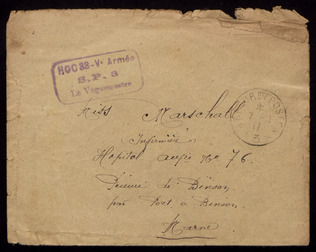 HOE 38 - Vᵉ Armée
S. P. 3
Le Vaguemestre
Miss Marschall
Infirmière
Hopital auxre No 76.
Prieuré de Binson
par Port à Binson
Marne